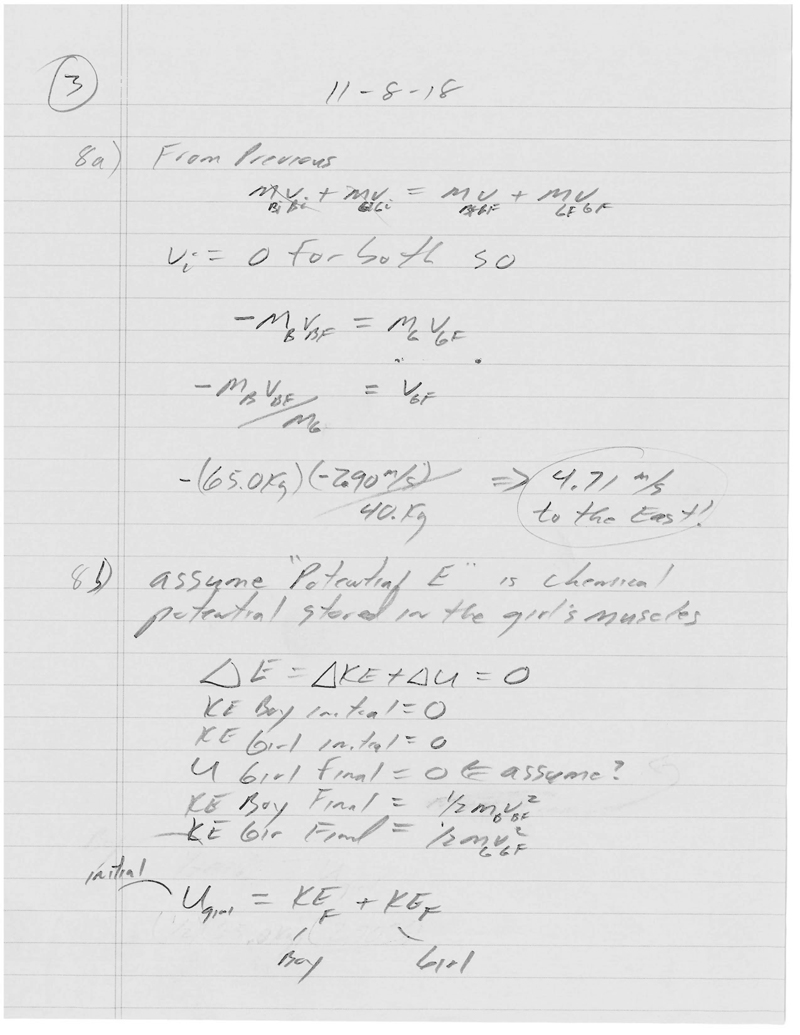 3
11-8-18
8a) From Previous
m_Bi v_Bi + m_Gi v_Gi = m_BF v_BF + m_GF v_GF
v_i = 0 for both so
-m_B v_BF = m_G v_GF
-m_B v_BF / m_G = v_GF
-(65.0Kg)(-2.90 m/s) / 40.Kg => 4.71 m/s
to the East!
8b) assume "Potential E" is chemical
potential stored in the girl's muscles
ΔE = ΔKE + ΔU = 0
KE Boy initial = 0
KE Girl initial = 0
U Girl Final = 0 ⇐ assume?
KE Boy Final = 1/2 m_B v_BF^2
KE Gir Final = 1/2 m_G v_GF^2
initial
U_girl = KE_F + KE_F
Boy Girl